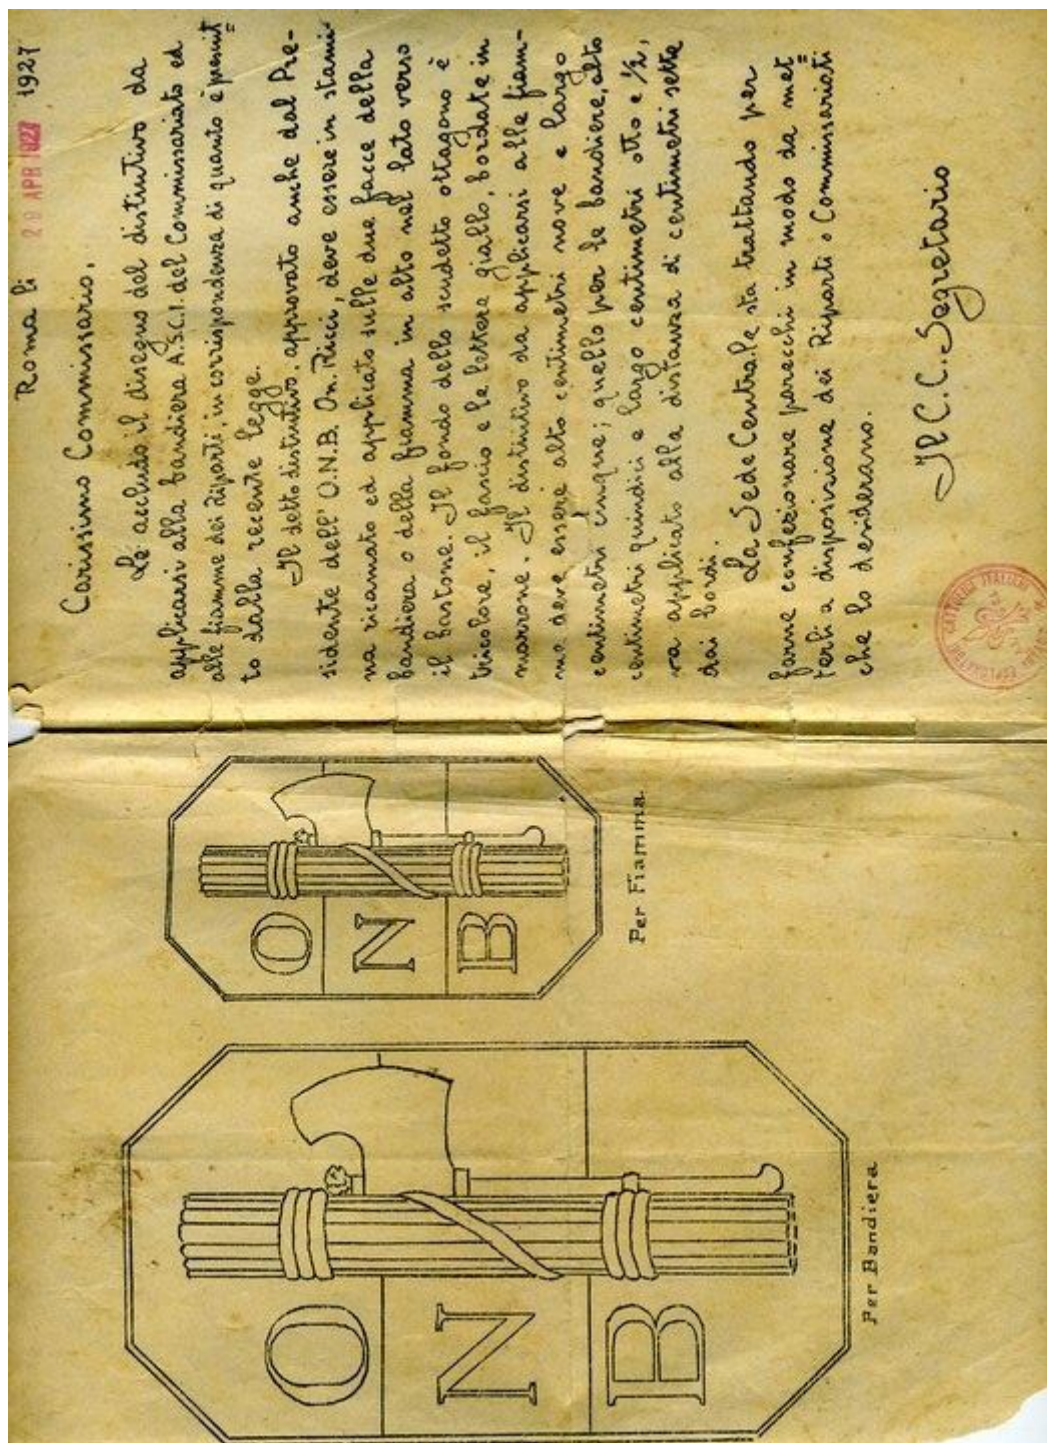 Roma li 29 APR 1927 1927
Carissimo Commissario,
Le accludo il disegno del distintivo da
applicarsi alla bandiera A.S.C.I. del Commissariato ed
alle fiamme dei Riparti, in corrispondenza di quanto è prescrit=
to dalla recente legge.
Il detto distintivo, approvato anche dal Pre-
sidente dell'O.N.B. On. Ricci, deve essere in stami-
na ricamato ed applicato sulle due facce della
bandiera o della fiamma in alto nel lato verso
il bastone. Il fondo dello scudetto ottagono è
tricolore, il fascio e le lettere giallo, bordate in
marrone. Il distintivo da applicarsi alle fiam-
me deve essere alto centimetri nove e largo
centimetri cinque; quello per le bandiere, alto
centimetri quindici e largo centimetri otto e ½,
va applicato alla distanza di centimetri sette
dai bordi.
La Sede Centrale sta trattando per
farne confezionare parecchi in modo da met=
terli a disposizione dei Riparti o Commissariati
che lo desiderano.
Il C.C. Segretario
ESPLORATORI CATTOLICI ITALIANI
O
N
B
Per Fiamma
O
N
B
Per Bandiera